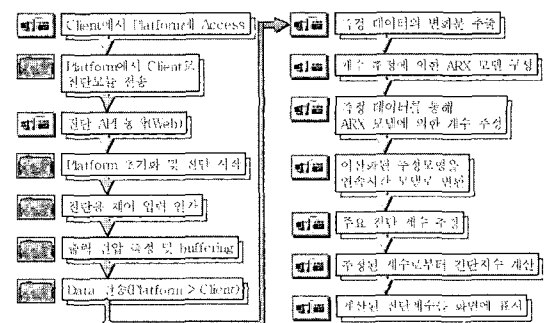 Client에서 Platform에 Access
Platform에서 Client로
진단모듈 전송
진단 API 동작(Web)
Platform 초기화 및 진단 시작
진단용 제어 입력 인가
출력 전압 측정 및 buffering
Data 전송(Platform > Client)
측정 데이터의 변화분 추출
계수 추정에 의한 ARX 모델 구성
측정 데이터를 통해
ARX 모델에 의한 계수 추정
이산화된 추정모델을
연속시간 모델로 변환
주요 진단 계수 추정
추정된 계수로부터 진단지수 계산
계산된 진단계수를 화면에 표시